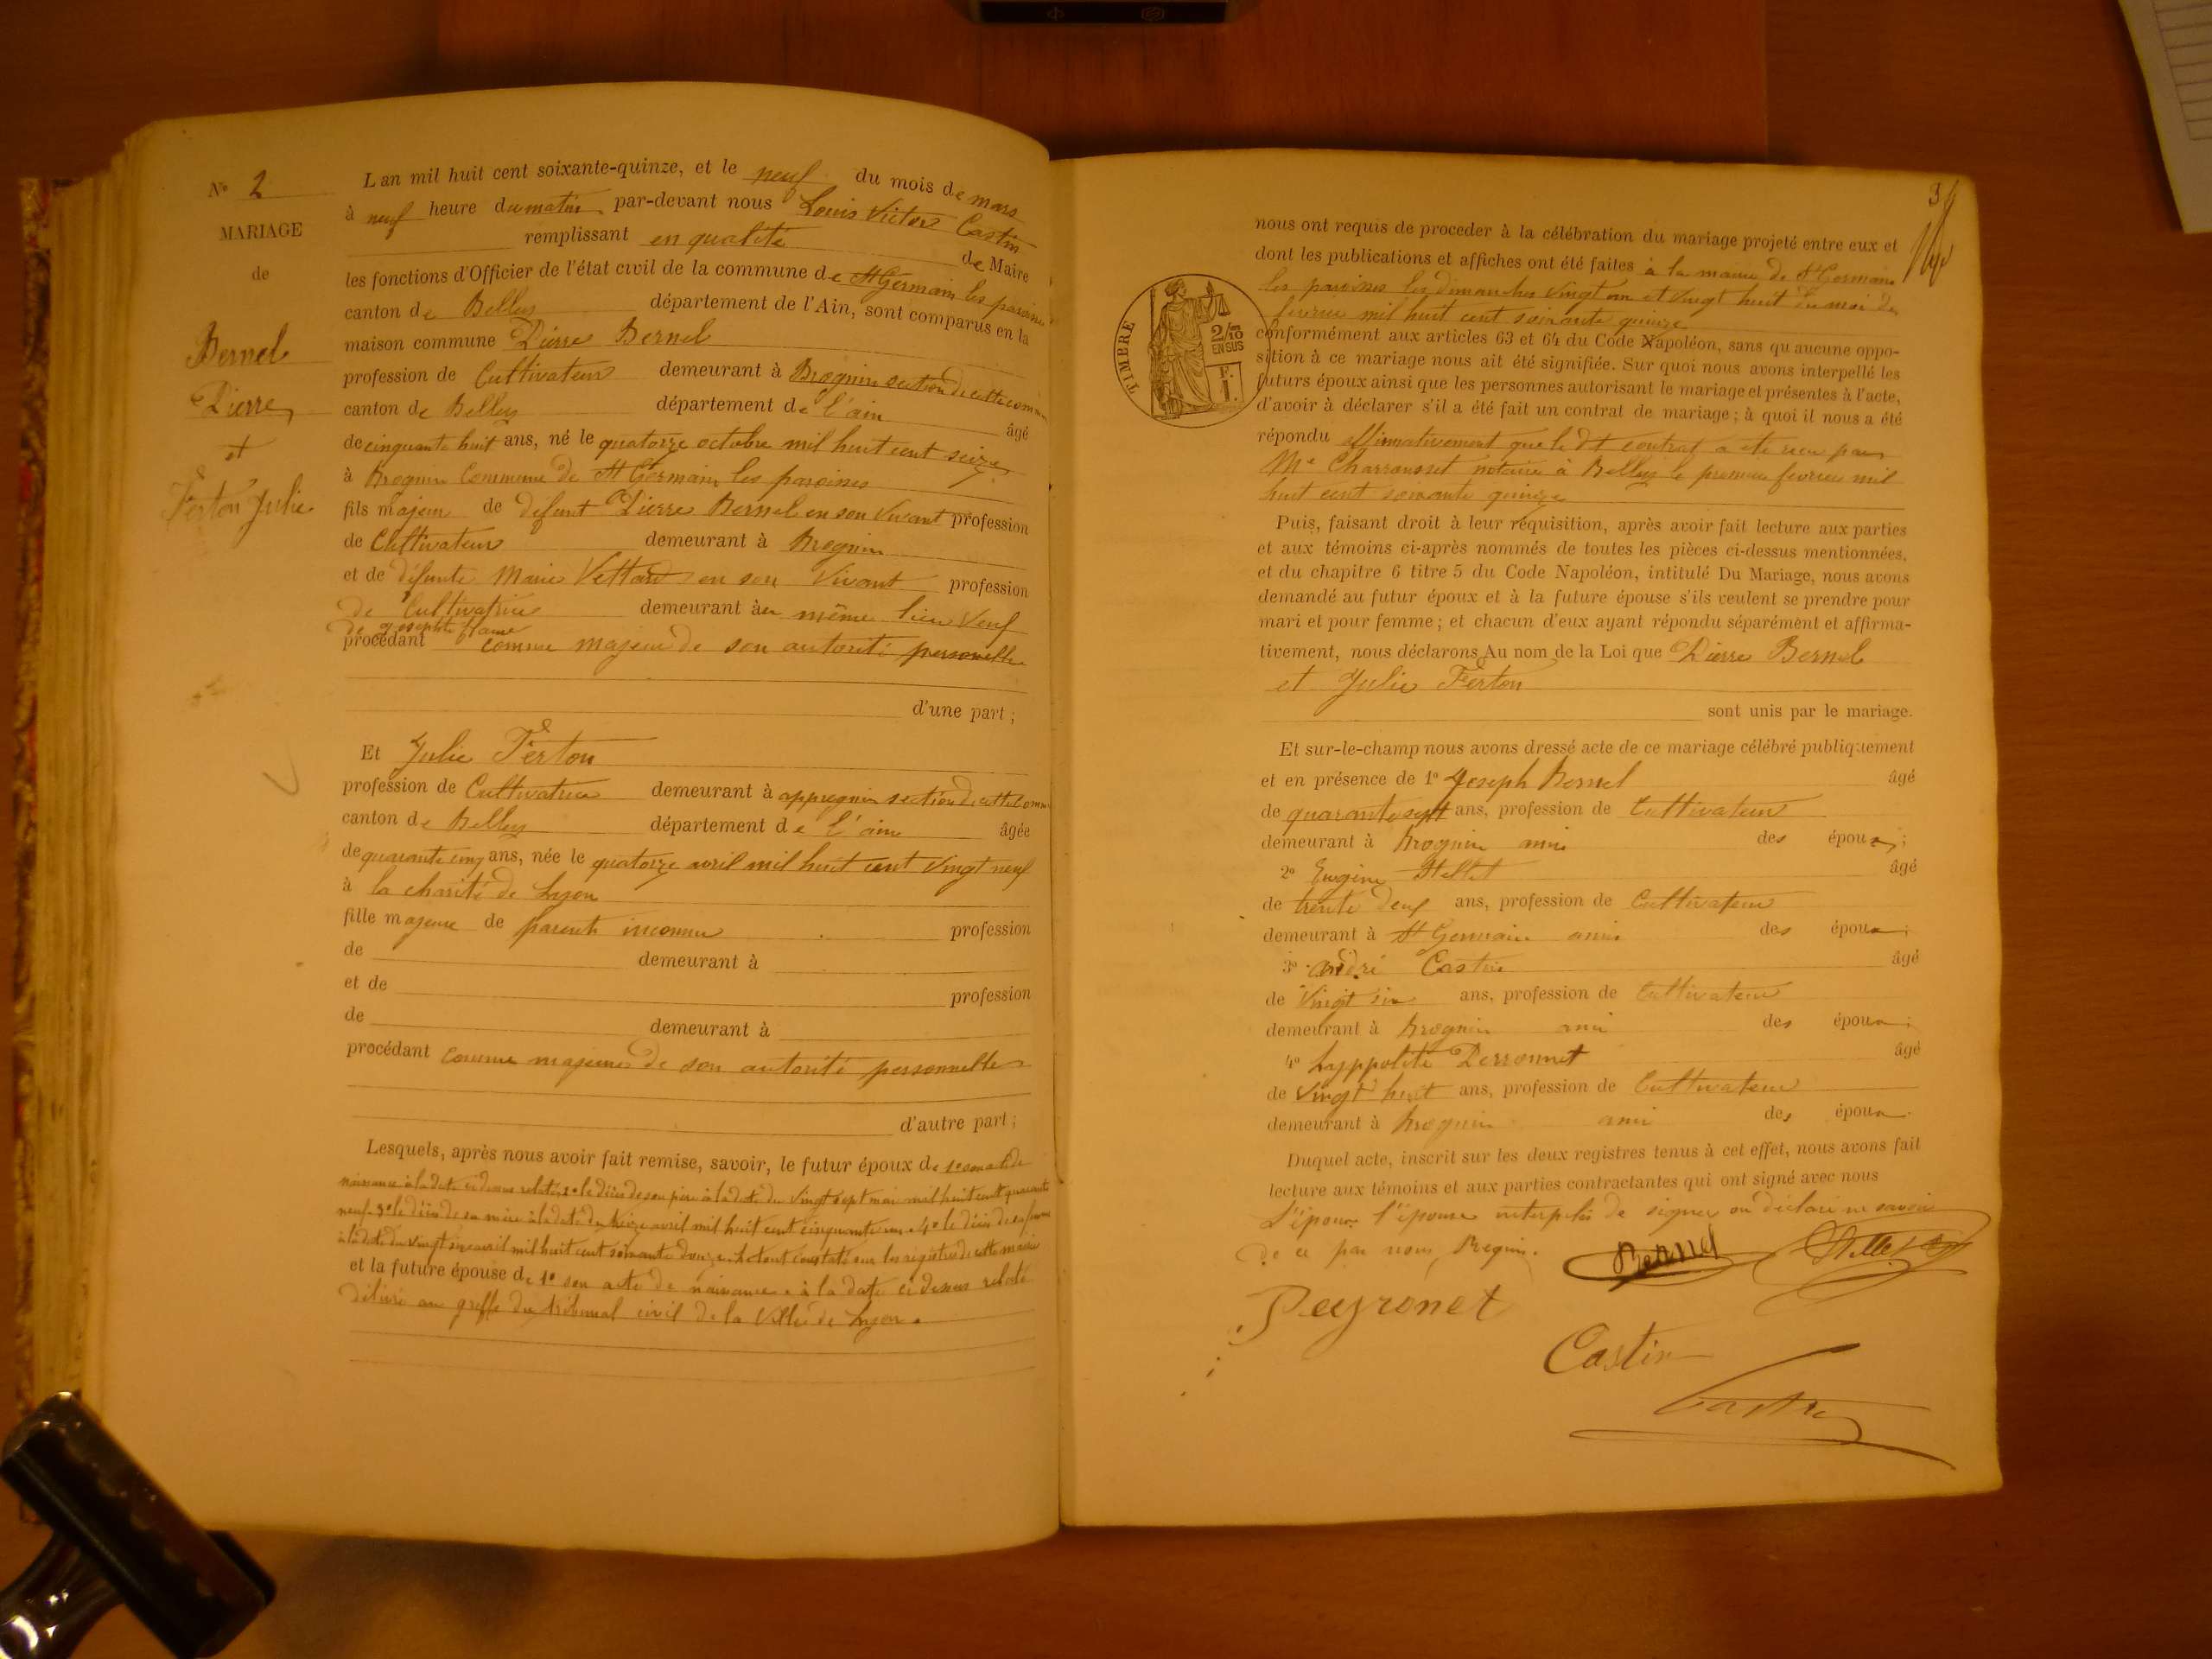 N° 2
MARIAGE
de
Bernel
Pierre
et
Ferton Julie
L'an mil huit cent soixante-quinze, et le neuf du mois de mars
à neuf heure du matin par-devant nous Louis Victor Castin
remplissant en qualité de Maire
les fonctions d'Officier de l'état civil de la commune de St Germain les paroisses
canton de Belley département de l'Ain, sont comparus en la
maison commune Pierre Bernel
profession de Cultivateur demeurant à Brognin section de cette commune
canton de Belley département de l'ain âgé
de cinquante huit ans, né le quatorze octobre mil huit cent seize
à Brognin Commune de St Germain les paroisses
fils majeur de défunt Pierre Bernel en son vivant profession
de Cultivateur demeurant à Brognin
et de défunte Marie Vettard en son vivant profession
de Cultivatrice demeurant au même lieu Veuf
de Josephte
procédant comme majeur de son autorité personelle
d'une part ;
Et Julie Ferton
profession de Cultivatrice demeurant à appregnin section de cette comm
canton de Belley département de l'ain âgée
de quarante cinq ans, née le quatorze avril mil huit cent vingt neuf
à la charité de Lyon
fille majeure de parents inconnu profession
de demeurant à
et de profession
de demeurant à
procédant comme majeure de son autorité personnelle
d'autre part ;
Lesquels, après nous avoir fait remise, savoir, le futur époux de 1° son acte de
naissance à la date ci dessus relaté 2° le décès de son père à la date du vingt sept mai mil huit cent quarante
neuf 3° le décès de sa mère à la date du treize avril mil huit cent cinquante un 4° le décès de sa femme
à la date du vingt six avril mil huit cent soixante douze le tout constaté sur les registres de cette mairie
et la future épouse de 1° son acte de naissance à la date ci dessus relaté
délivré au greffe du tribunal civil de la Ville de Lyon.
3
nous ont requis de proceder à la célébration du mariage projeté entre eux et
dont les publications et affiches ont été faites à la mairie de St Germain
les paroisses les dimanches vingt un et vingt huit du moi de
fevrier mil huit cent soixante quinze
conformément aux articles 63 et 64 du Code Napoléon, sans qu'aucune oppo-
sition à ce mariage nous ait été signifiée. Sur quoi nous avons interpellé les
futurs époux ainsi que les personnes autorisant le mariage et présentes à l'acte,
d'avoir à déclarer s'il a été fait un contrat de mariage ; à quoi il nous a été
répondu affirmativement que le dt contrat a ete recu par
Me Charrousset notaire à Belley le premier fevrier mil
huit cent soixante quinze
TIMBRE
2/10
EN SUS
F.
1.
Puis, faisant droit à leur réquisition, après avoir fait lecture aux parties
et aux témoins ci-après nommés de toutes les pièces ci-dessus mentionnées,
et du chapitre 6 titre 5 du Code Napoléon, intitulé Du Mariage, nous avons
demandé au futur époux et à la future épouse s'ils veulent se prendre pour
mari et pour femme ; et chacun d'eux ayant répondu séparément et affirma-
tivement, nous déclarons Au nom de la Loi que Pierre Bernel
et Julie Ferton
sont unis par le mariage.
Et sur-le-champ nous avons dressé acte de ce mariage célébré publiquement
et en présence de 1° Joseph Bernel âgé
de quarante sept ans, profession de Cultivateur
demeurant à Brognin ami des époux ;
2° Eugène âgé
de trente deux ans, profession de Cultivateur
demeurant à St Germain ami des époux ;
3° andré Castin âgé
de Vingt six ans, profession de Cultivateur
demeurant à Brognin ami des époux ;
4° hyppolite Perronnet âgé
de Vingt huit ans, profession de Cultivateur
demeurant à Brognin ami des époux
Duquel acte, inscrit sur les deux registres tenus à cet effet, nous avons fait
lecture aux témoins et aux parties contractantes qui ont signé avec nous
L'époux l'épouse interpelés de signer on déclaré ne savoir
de ce par nous Requis.
Bernel
Peyronet
Castin